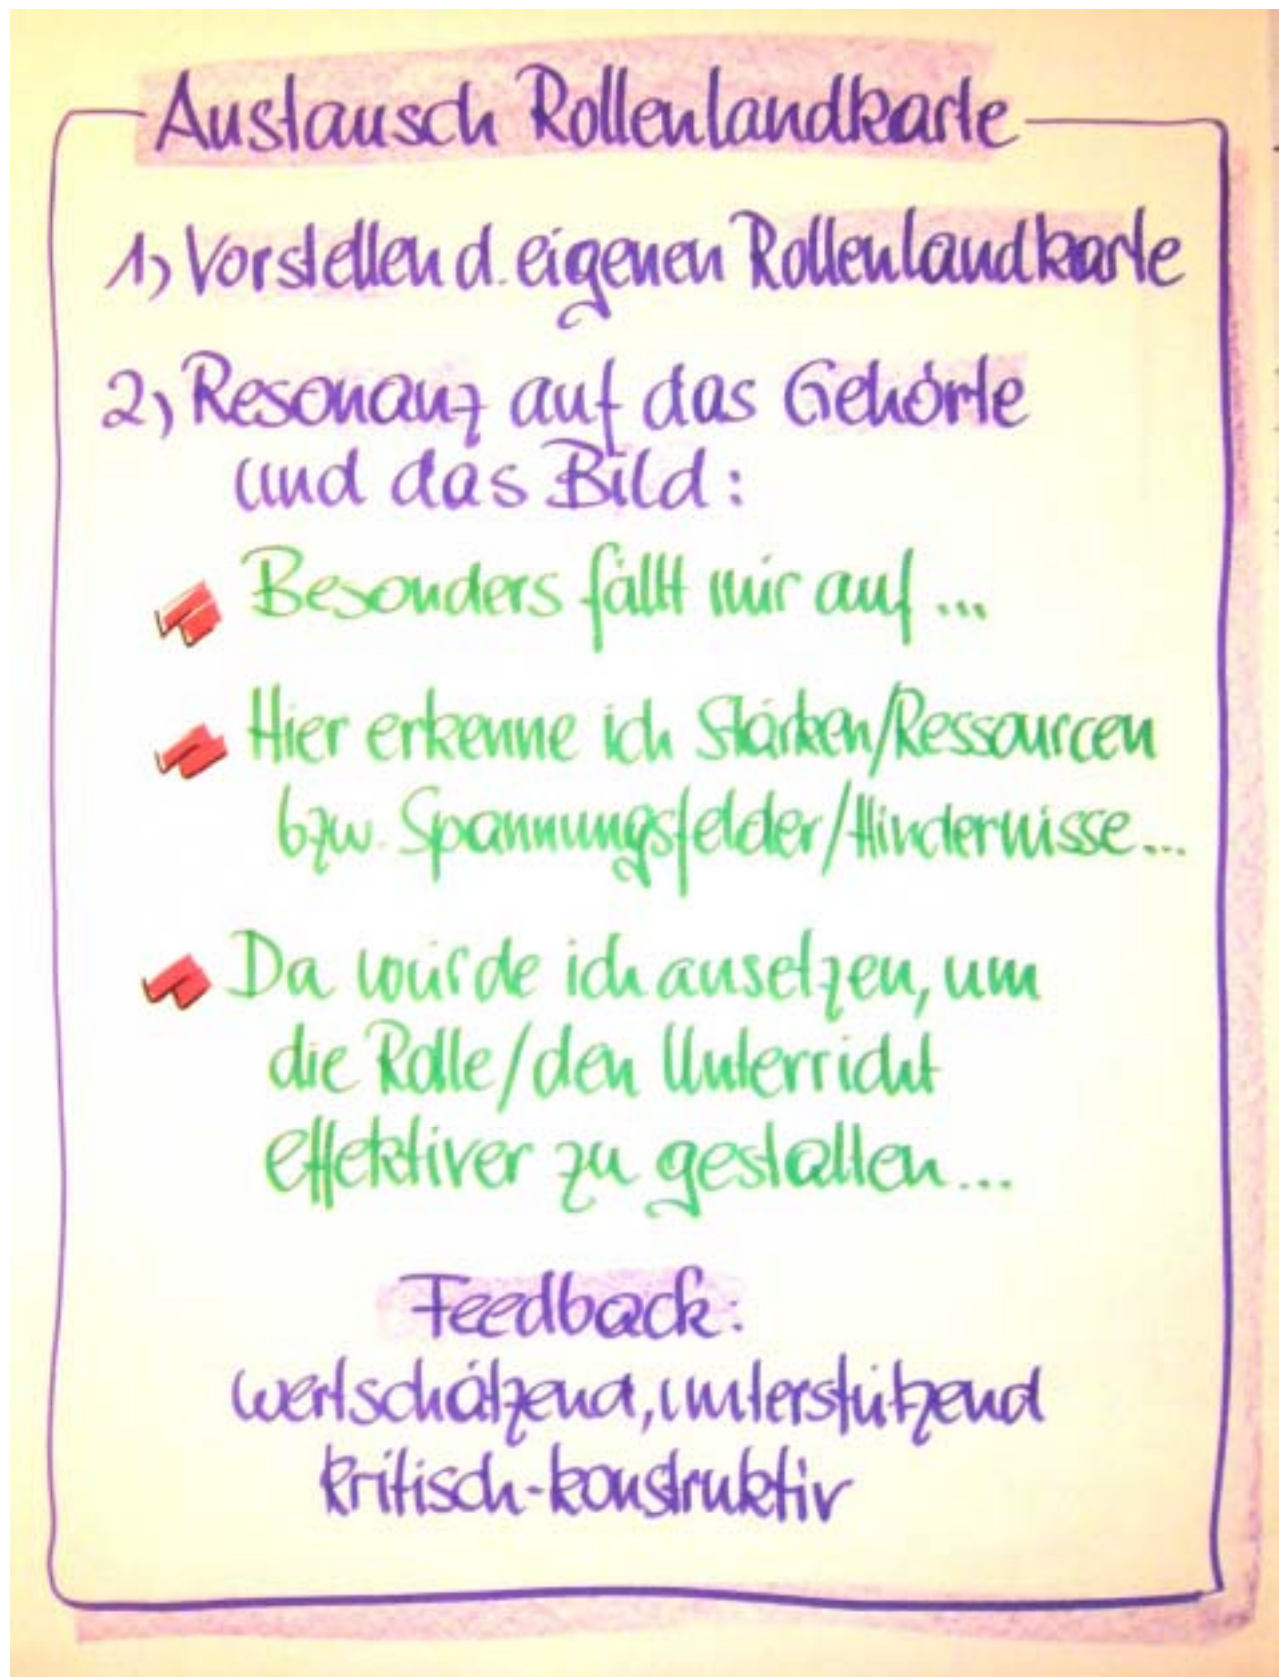 Austausch Rollenlandkarte
1) Vorstellen d. eigenen Rollenlandkarte
2) Resonanz auf das Gehörte
und das Bild:
Besonders fällt mir auf ...
Hier erkenne ich Stärken/Ressourcen
bzw. Spannungsfelder/Hindernisse...
Da würde ich ansetzen, um
die Rolle/den Unterricht
effektiver zu gestalten...
Feedback:
wertschätzend, unterstützend
kritisch-konstruktiv